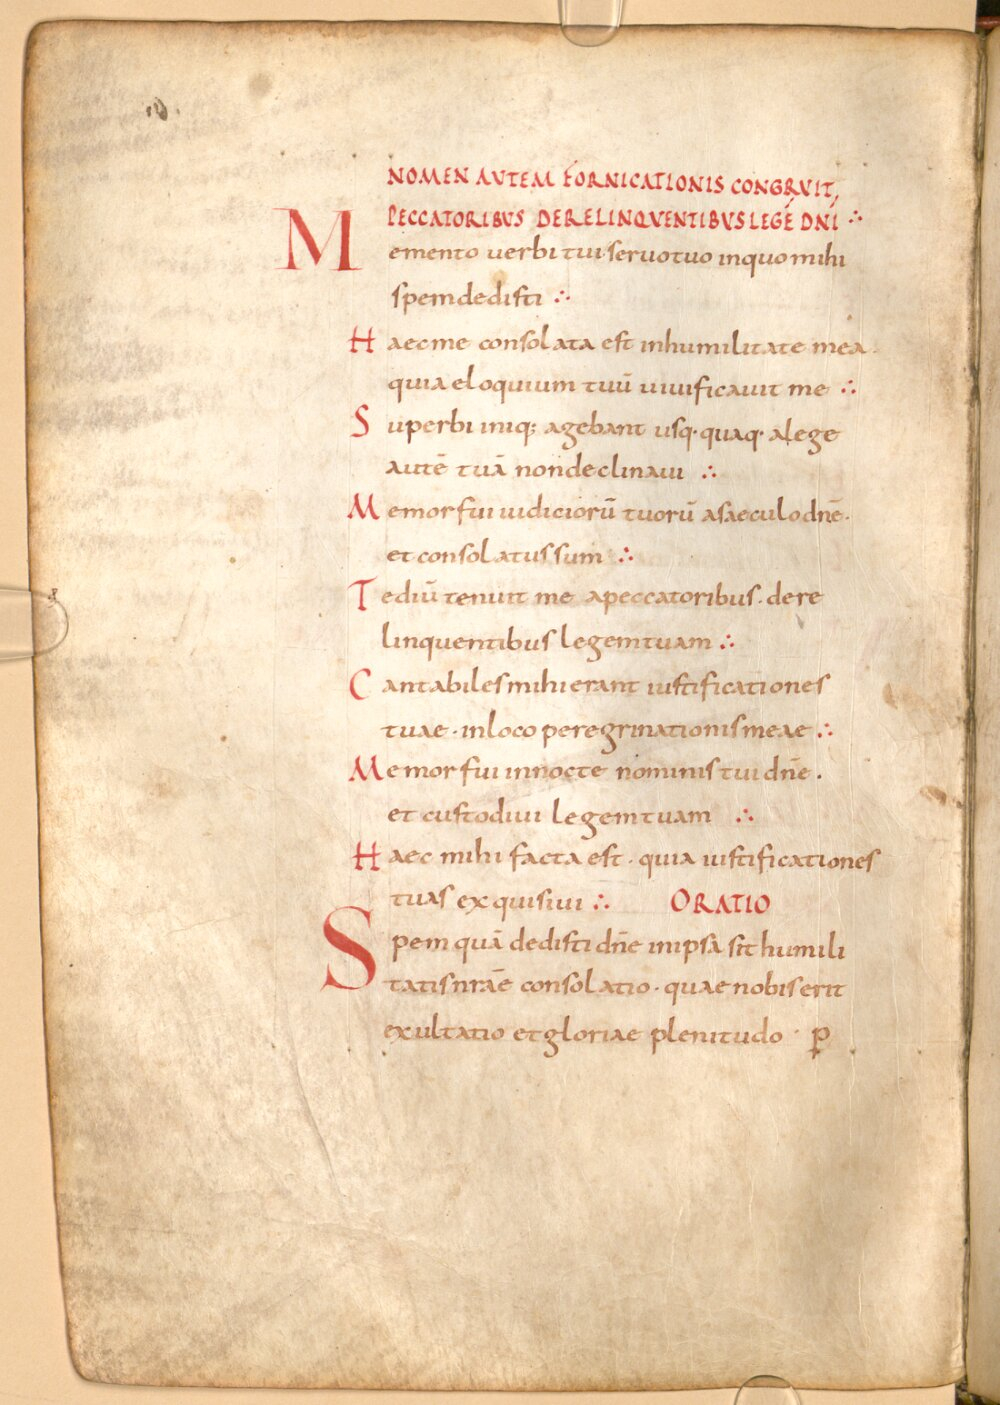 NOMEN AVTEM FORNICATIONIS CONGRVIT,
PECCATORIBVS DERELINQVENTIBVS LEGĒ DNI ∴
Memento uerbi tui seruo tuo in quo mihi
spem dedisti ∴
Haec me consolata est in humilitate mea.
quia eloquium tuū uiuificauit me ∴
Superbi iniq; agebant usq· quaq· a lege
autē tuā non declinaui ∴
Memor fui iudiciorū tuorū a saeculo dn̄e·
et consolatus sum ∴
Tediū tenuit me a peccatoribus· dere
linquentibus legem tuam ∴
Cantabiles mihi erant iustificationes
tuae · in loco peregrinationis meae ∴
Memor fui in nocte nominis tui dn̄e .
et custodiui legem tuam ∴
Haec mihi facta est · quia iustificationes
tuas exquisiui ∴ ORATIO
Spem quā dedisti dn̄e in ipsa sit humili
tatis nr̄ae consolatio · quae nobis erit
exultatio et gloriae plenitudo · ꝑ